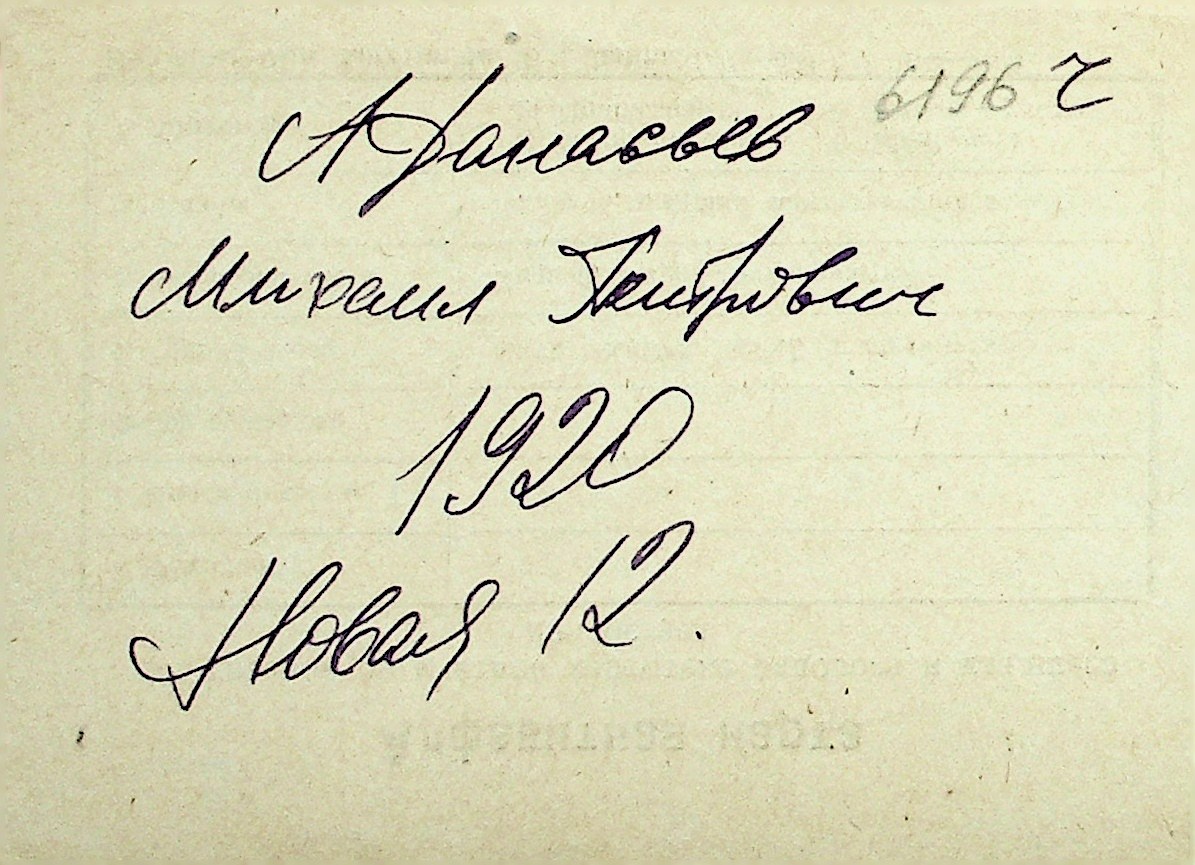 6196 ч
Афанасьев
Михаил Петрович
1920
Новая 12.